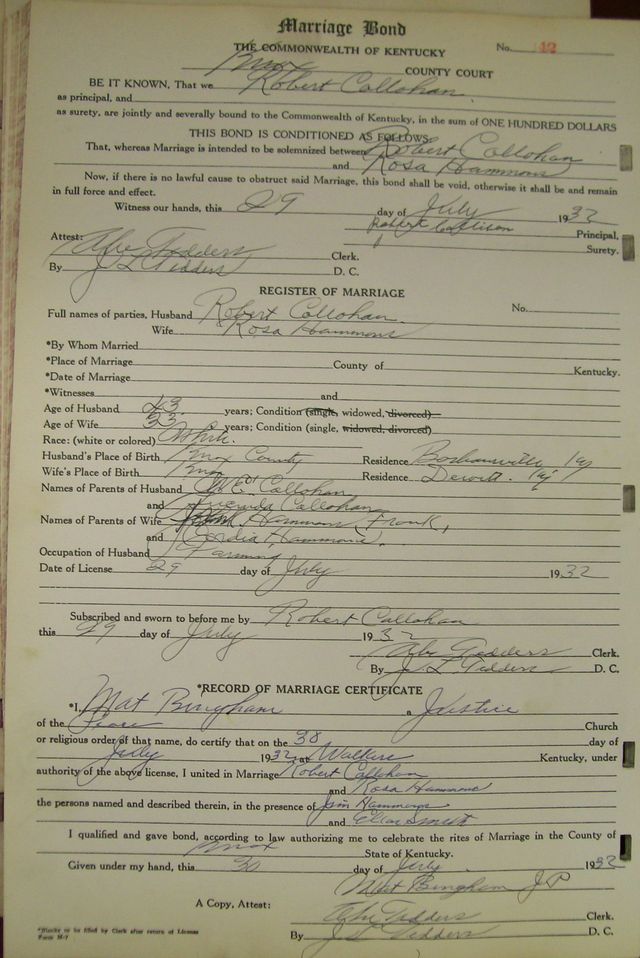 Marriage Bond
THE COMMONWEALTH OF KENTUCKY No. 12
Knox COUNTY COURT
BE IT KNOWN, That we Robert Callohan
as principal, and
as surety, are jointly and severally bound to the Commonwealth of Kentucky, in the sum of ONE HUNDRED DOLLARS
THIS BOND IS CONDITIONED AS FOLLOWS
That, whereas Marriage is intended to be solemnized between Robert Callohan
and Rosa Hammons
Now, if there is no lawful cause to obstruct said Marriage, this bond shall be void, otherwise it shall be and remain
in full force and effect.
Witness our hands, this 29 day of July 1932
Robert Principal,
Attest: Surety.
Abe Tedders Clerk.
By J L Tedders D. C.
REGISTER OF MARRIAGE
Full names of parties, Husband Robert Callohan No.
Wife Rosa Hammons
*By Whom Married
*Place of Marriage County of Kentucky.
*Date of Marriage
*Witnesses and
Age of Husband 43 years; Condition (single, widowed, divorced)
Age of Wife 33 years; Condition (single, widowed, divorced)
Race: (white or colored) White
Husband's Place of Birth Knox County Residence Ky
Wife's Place of Birth Knox Residence Dewitt Ky
Names of Parents of Husband Callohan
and Lucinda Callohan
Names of Parents of Wife Hammons, Frank,
and Hammons
Occupation of Husband Farming
Date of License 29 day of July 1932
Subscribed and sworn to before me by Robert Callohan
this 29 day of July 1932
Abe Tedders Clerk.
By J. L. Tedders D. C.
*RECORD OF MARRIAGE CERTIFICATE
*I, Mat Bingham a Justice
of the Peace Church
or religious order of that name, do certify that on the 30 day of
July 1932 at Walkers Kentucky, under
authority of the above license, I united in Marriage Robert Callohan
and Rosa Hammons
the persons named and described therein, in the presence of Jim Hammons
and
I qualified and gave bond, according to law authorizing me to celebrate the rites of Marriage in the County of
Knox State of Kentucky.
Given under my hand, this 30 day of July 1932
Mat Bingham J P
A Copy, Attest: Abe Tedders Clerk.
By J L Tedders D. C.
*Blanks to be filled by Clerk after return of License
Form M-7